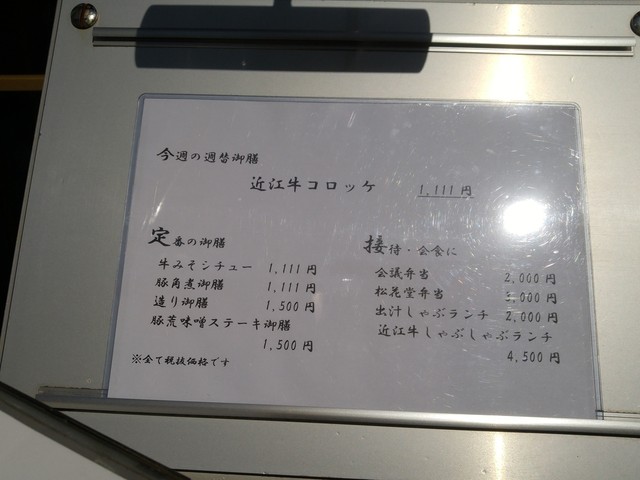 今週の週替御膳
近江牛コロッケ 1,111円
定番の御膳
牛みそシチュー 1,111円
豚角煮御膳 1,111円
造り御膳 1,500円
豚荒味噌ステーキ御膳
1,500円
※全て税抜価格です
接待・会食に
会議弁当 2,000円
松花堂弁当 3,000円
出汁しゃぶランチ 2,000円
近江牛しゃぶしゃぶランチ
4,500円